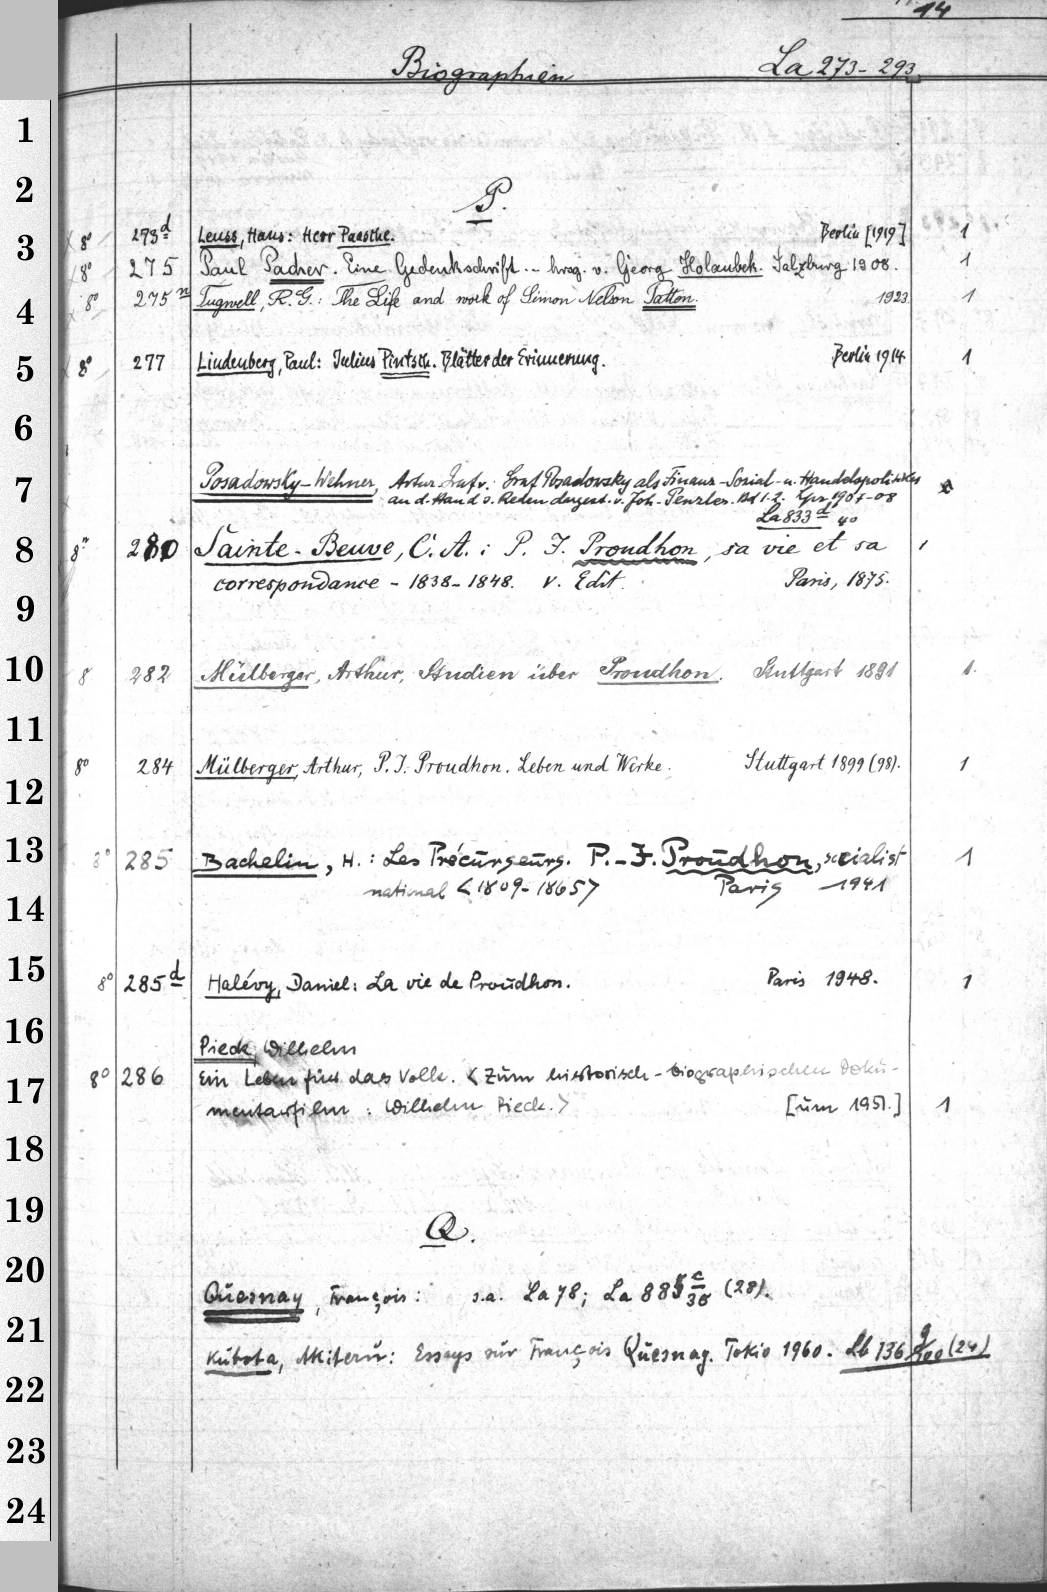 14
Biographien La 273-293
1
2 P.
3 8° 273d Leuss, Hans: Herr Paasche. Berlin [1919] 1
8° 275 Paul Pacher. Eine Gedenkschrift .- hrsg. v. Georg Holaubek. Salzburg 1908. 1
4 8° 275n Tugwell, R.G.: The Life and work of Simon Nelson Patton. 1923. 1
5 8° 277 Lindenberg, Paul: Julius Pintsch. Blätter der Erinnerung. Berlin 1914 1
6
7 Posadowsky-Wehner, Artur Graf v.: Graf Posadowsky als Finanz-Sozial-u. Handelspolitiker
an d. Hand s. Reden dargest. v. Joh. Penzler. Bd 1-2. Lpz 1907-08
La 833d 40
8 8° 280 Sainte-Beuve, C. A.: P. J. Proudhon, sa vie et sa 1
9 correspondance - 1838-1848. v. Edit. Paris, 1875.
10 8 282 Mülberger, Arthur, Studien über Proudhon. Stuttgart 1891 1.
11
8° 284 Mülberger, Arthur, P.J. Proudhon. Leben und Werke. Stuttgart 1899 (98). 1
12
13 8° 285 Bachelin, H.: Les Précurseurs. P.-J. Proudhon, socialist 1
national <1809-1865> Paris 1941
14
15 8° 285d Halévy, Daniel: La vie de Proudhon. Paris 1948. 1
16 Pieck, Wilhelm
17 8° 286 Ein Leben für das Volk. <Zum historisch-biographischen Doku-
mentarfilm: Wilhelm Pieck.> [um 1951.] 1
18
19 Q.
20 Quesnay, François: s.a. La 78; La 885 c/36 (28).
21 Kubota, Akiteru: Essays sur François Quesnay. Tokio 1960. Lb 736 g/100 (24)
22
23
24